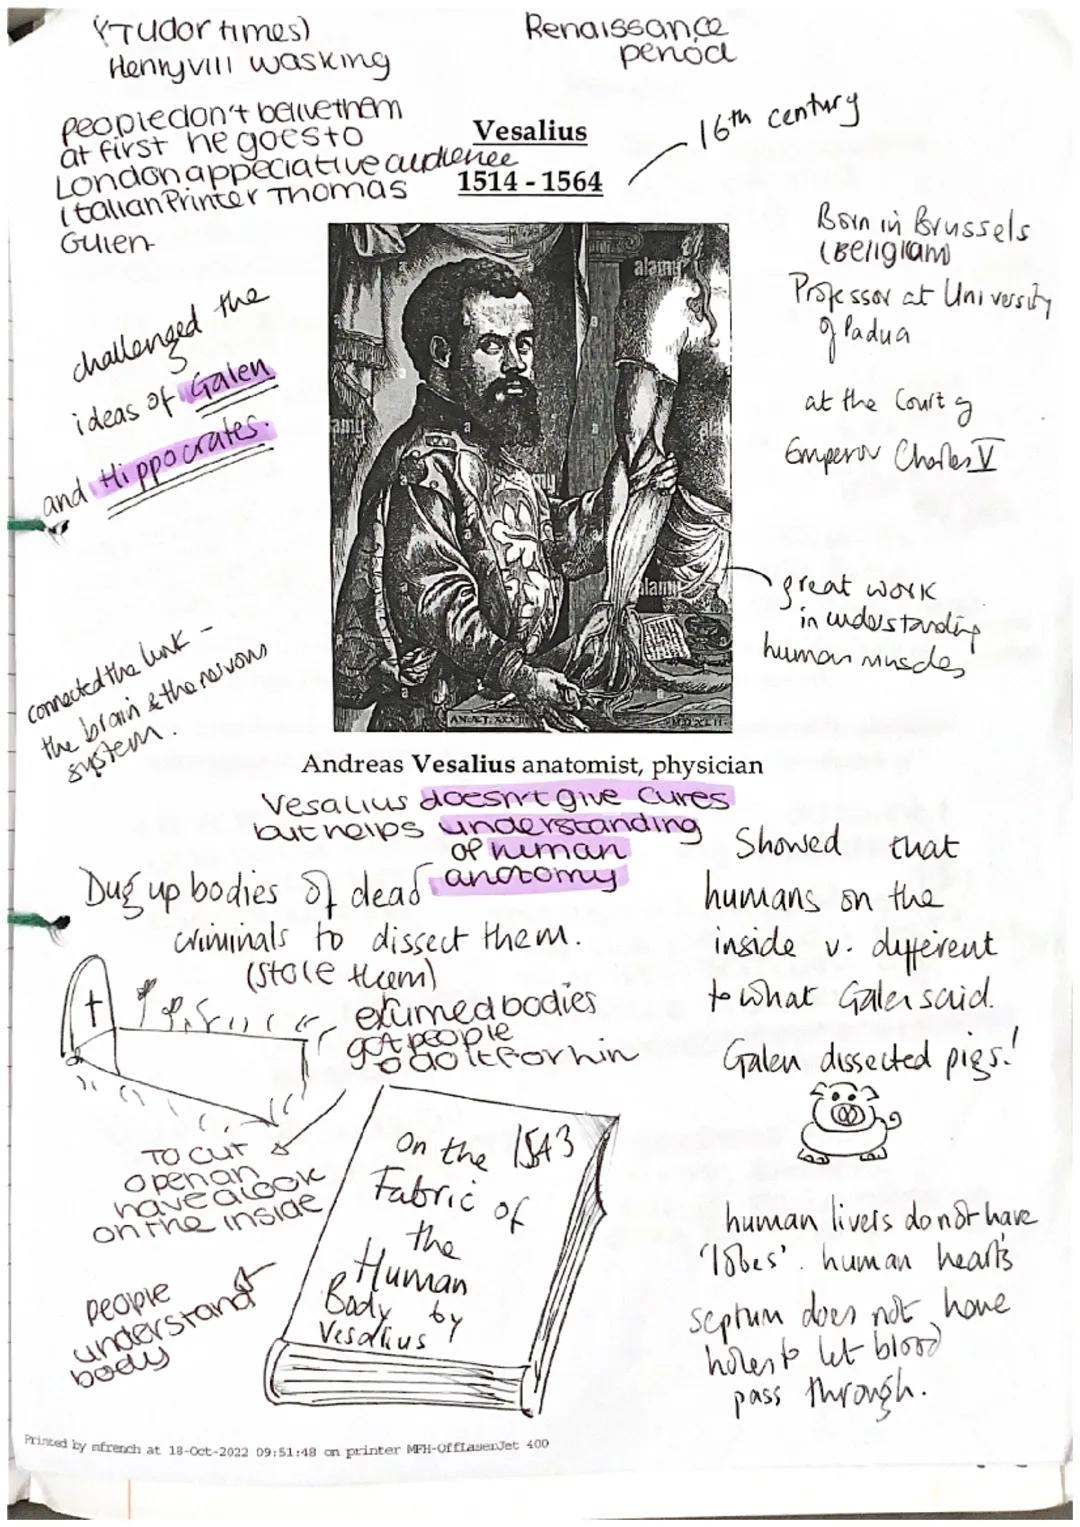 (Tudor times)
Henry VIII was king
Renaissance
period
people don't belivethem
at first he goes to
London appeciative audience
Italian Printer Thomas
Vesalius
1514 - 1564
16th century
Born in Brussels
Professor at University
of Padua
at the Court of
Emperor Charles V
challenged the
ideas of Galen
and Hippocrates.
great work
in understanding
human muscles
connected the link -
the brain & the nervous
system.
alamy
Andreas Vesalius anatomist, physician
Vesalius doesn't give cures
but helps understanding
of human
anotomy
Dug up bodies of dead
criminals to dissect them.
(stole them)
exumed bodies
got people
to do it for him
To cut
open an
have a look
on the inside
people
understand
body
On the 1543
Fabric of
the
Human
Body by
Vesalius
Showed that
humans on the
inside v. different
to what Galen said.
Galen dissected pigs!
human livers do not have
'lobes'. human hearts
septum does not have
holes to let blood
pass through.
Printed by mfrench at 18-Oct-2022 09:51:48 on printer MFH-OffLaserJet 400